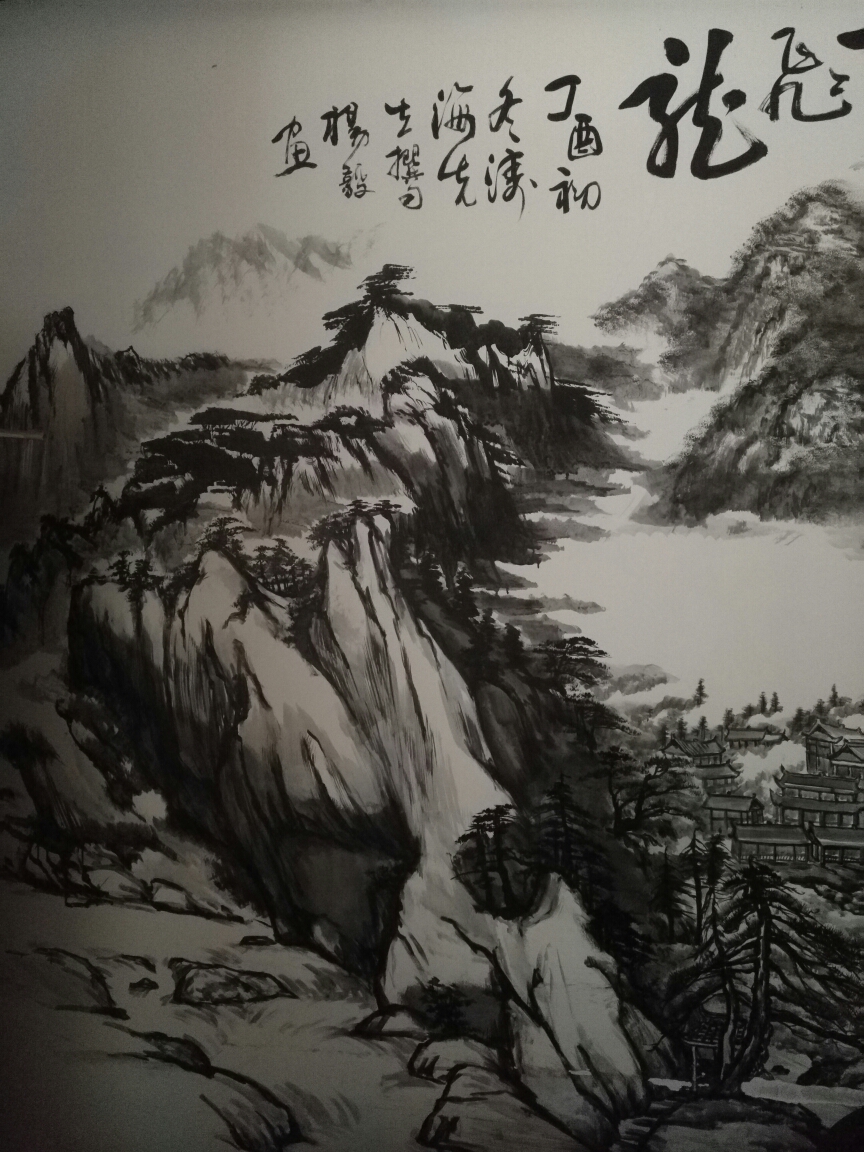 飞
龙
丁酉初
冬涛
海先
生撰句
杨毅
画